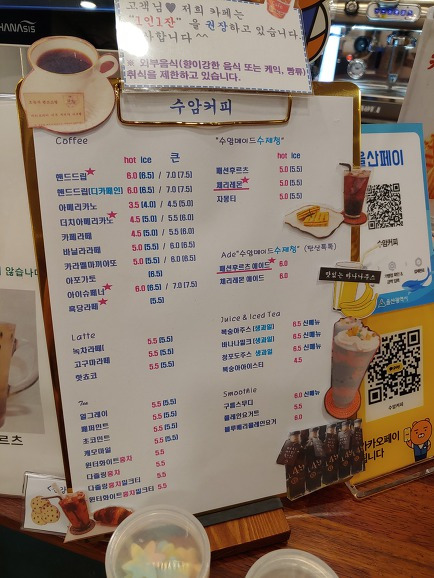 고객님♥ 저희 카페는
"1인1잔" 을 권장하고 있습니다.
감사합니다 ^^
※ 외부음식(향이강한 음식 또는 케익, 빵류)
취식을 제한하고 있습니다.
수암커피
Coffee
hot ice 큰
핸드드립★ 6.0 (6.5) / 7.0 (7.5)
핸드드립(디카페인) 6.0 (6.5) / 7.0 (7.5)
아메리카노 3.5 (4.0) / 4.5 (5.0)
더치아메리카노★ 4.5 (5.0) / 5.5 (6.0)
카페라떼 4.5 (5.0) / 5.5 (6.0)
바닐라라떼 5.0 (5.5) / 6.0 (6.5)
카라멜마끼아또 5.0 (5.5) / 6.0 (6.5)
아포가토 (6.5)
아이슈페너★ 6.0 (6.5) / 7.0 (7.5)
흑당라떼 (5.5)
Latte
녹차라떼 5.5 (5.5)
고구마라떼 5.5 (5.5)
핫쵸코 5.5 (5.5)
Tea
얼그레이 5.5 (5.5)
페퍼민트 5.5 (5.5)
초코민트 5.5 (5.5)
캐모마일 5.5 (5.5)
윈터화이트뭉치 5.5
다즐링뭉치 5.5
다즐링뭉치밀크티 5.5
윈터화이트뭉치밀크티 5.5
"수암메이드수제청"
hot ice
패션후르츠 5.0 (5.5)
체리레몬★ 5.0 (5.5)
자몽티 5.0 (5.5)
Ade"수암메이드수제청"
패션후르츠 에이드★ 6.0
체리레몬 에이드 6.0
Juice & Iced Tea
복숭아주스 (생과일) 6.5 신메뉴
바나나밀크 (생과일) 6.5 신메뉴
청포도주스 (생과일) 6.5
복숭아아이스티 4.5
Smoothie
구름스무디 6.0 신메뉴
플레인요거트 5.5
블루베리플레인요거 6.0
맛있는 바나나쥬스
울산페이
수암커피
울산광역시
수암커피
카카오페이